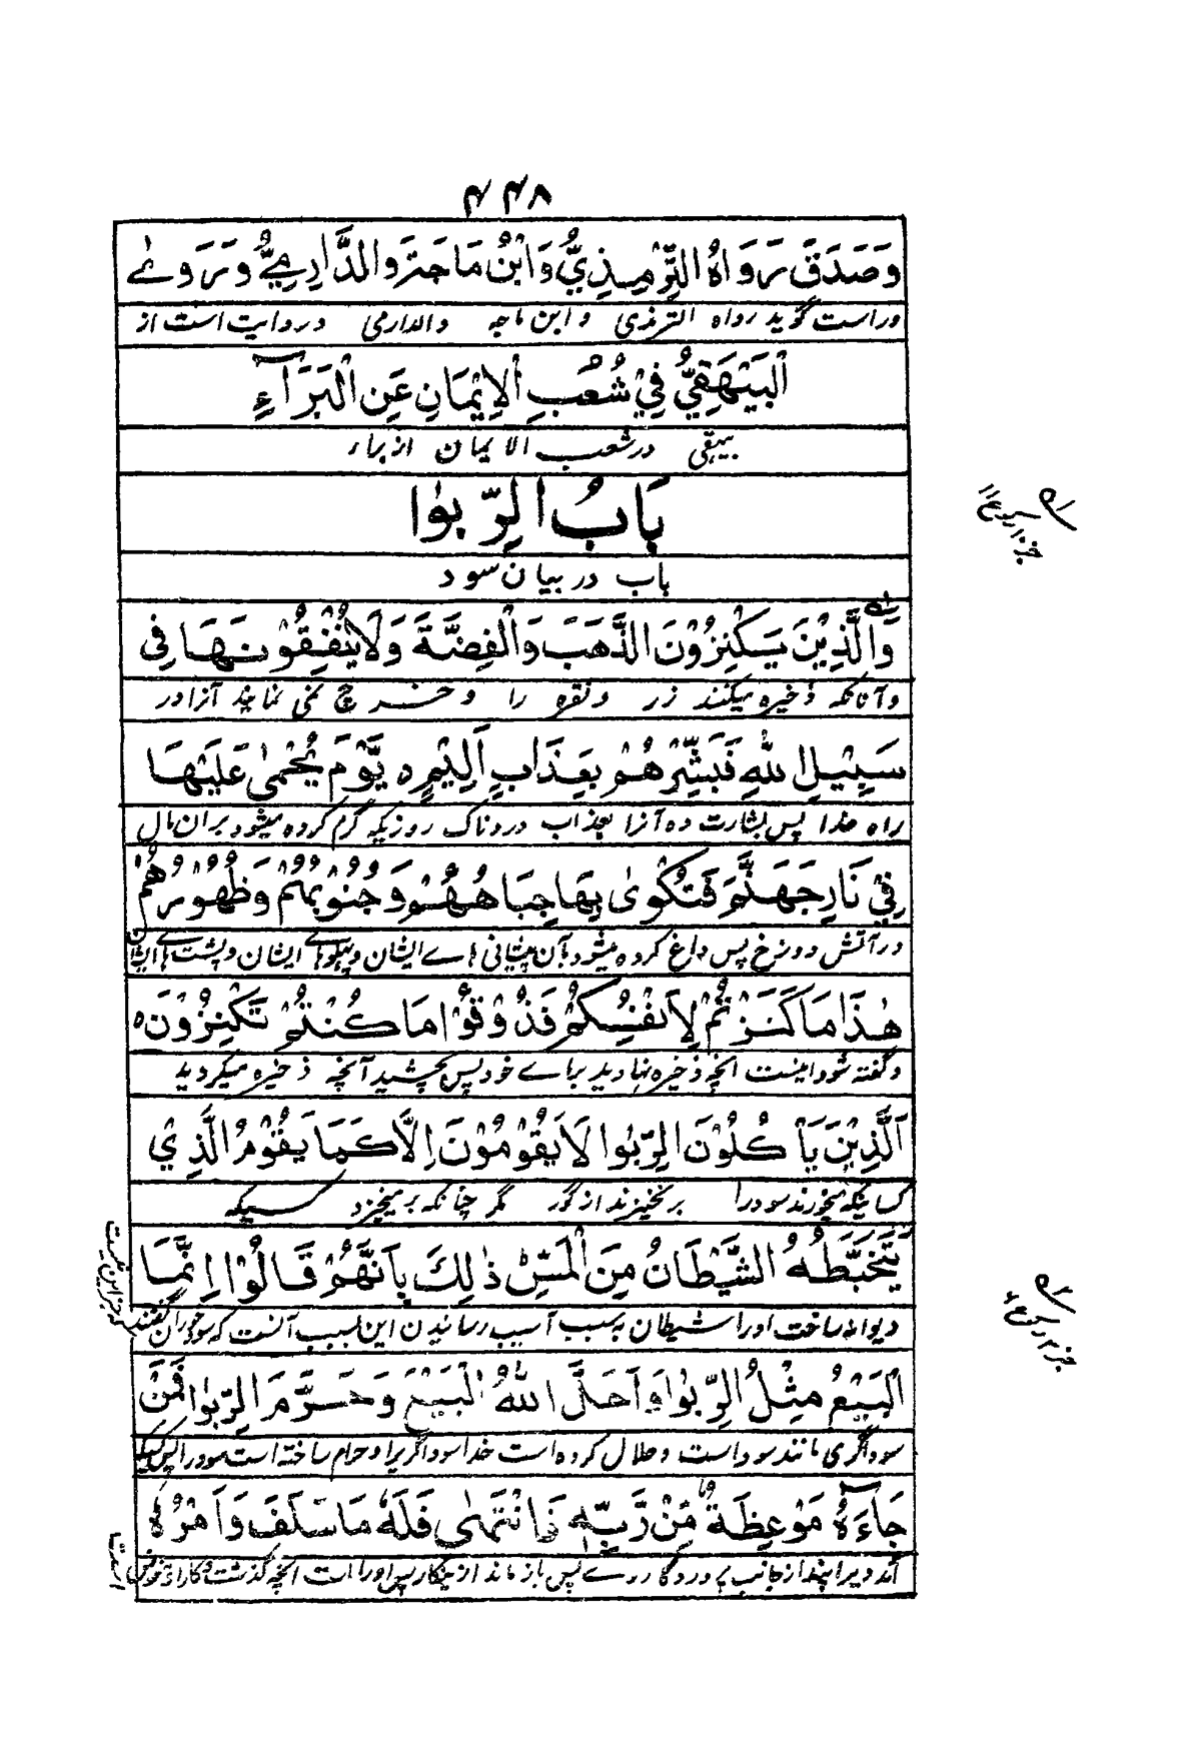 ۴۴۸
وَصَدَقَ رَوَاهُ التِّرْمِذِيُّ وَابْنُ مَاجَتَ وَالدَّارِمِيُّ وَرَوَے
وراست گوید رواه الترمذی و ابن ماجه والدارمی و روایت است از
الْبَيْهَقِيُّ فِيْ شُعُبِ الْاِيْمَانِ عَنِ الْبَرَآءِ
بیهقی در شعب الایمان از براء
بَابُ الرِّبٰوا
باب در بیان سود
وَالَّذِيْنَ يَكْنِزُوْنَ الذَّهَبَ وَالْفِضَّةَ وَلَا يُنْفِقُوْنَهَا فِي
وآنانکه ذخیره میکنند زر ونقره را و خرچ نمی نمایند آنرا در
سَبِيْلِ اللّٰهِ فَبَشِّرْهُمْ بِعَذَابٍ اَلِيْمٍ ه يَّوْمَ يُحْمٰى عَلَيْهَا
راه خدا پس بشارت ده آنرا بعذاب دردناک روزیکه گرم کرده میشود بران مال
فِيْ نَارِ جَهَنَّمَ فَتُكْوٰى بِهَا جِبَاهُهُمْ وَجُنُوْبُهُمْ وَظُهُوْرُهُمْ
در آتش دوزخ پس داغ کرده میشود بآن پیشانی هاے ایشان و پهلوهاے ایشان و پشت هاے ایشان
هٰذَا مَا كَنَزْتُمْ لِاَنْفُسِكُمْ فَذُوْقُوْا مَا كُنْتُمْ تَكْنِزُوْنَ ه
و گفته شود اینست انچه ذخیره نهادید براے خود پس بچشید آنچه ذخیره میکردید
اَلَّذِيْنَ يَاْكُلُوْنَ الرِّبٰوا لَا يَقُوْمُوْنَ اِلَّا كَمَا يَقُوْمُ الَّذِيْ
کسانیکه میخورند سود را برنخیزند از گور مگر چنانکه برمیخیزد کسیکه
يَتَخَبَّطُهُ الشَّيْطَانُ مِنَ الْمَسِّ ذٰلِكَ بِاَنَّهُمْ قَالُوْا اِنَّمَا
دیوانه ساخت اورا شیطان بسبب آسیب رسانیدن این بسبب آنست که سودخوران گفتند
که جز این نیست
الْبَيْعُ مِثْلُ الرِّبٰوا وَاَحَلَّ اللّٰهُ الْبَيْعَ وَحَرَّمَ الرِّبٰوا فَمَنْ
سوداگری مانند سود است و حلال کرده است خدا سوداگریرا و حرام ساخته است سود را پس کسیکه
جَآءَهٗ مَوْعِظَةٌ مِّنْ رَّبِّهٖ فَانْتَهٰى فَلَهٗ مَا سَلَفَ وَاَمْرُهٗ
آمد ویرا پند از جانب پروردگار وے پس باز ماند از اینکار پس اوراست انچه گذشت و کار او مفوض